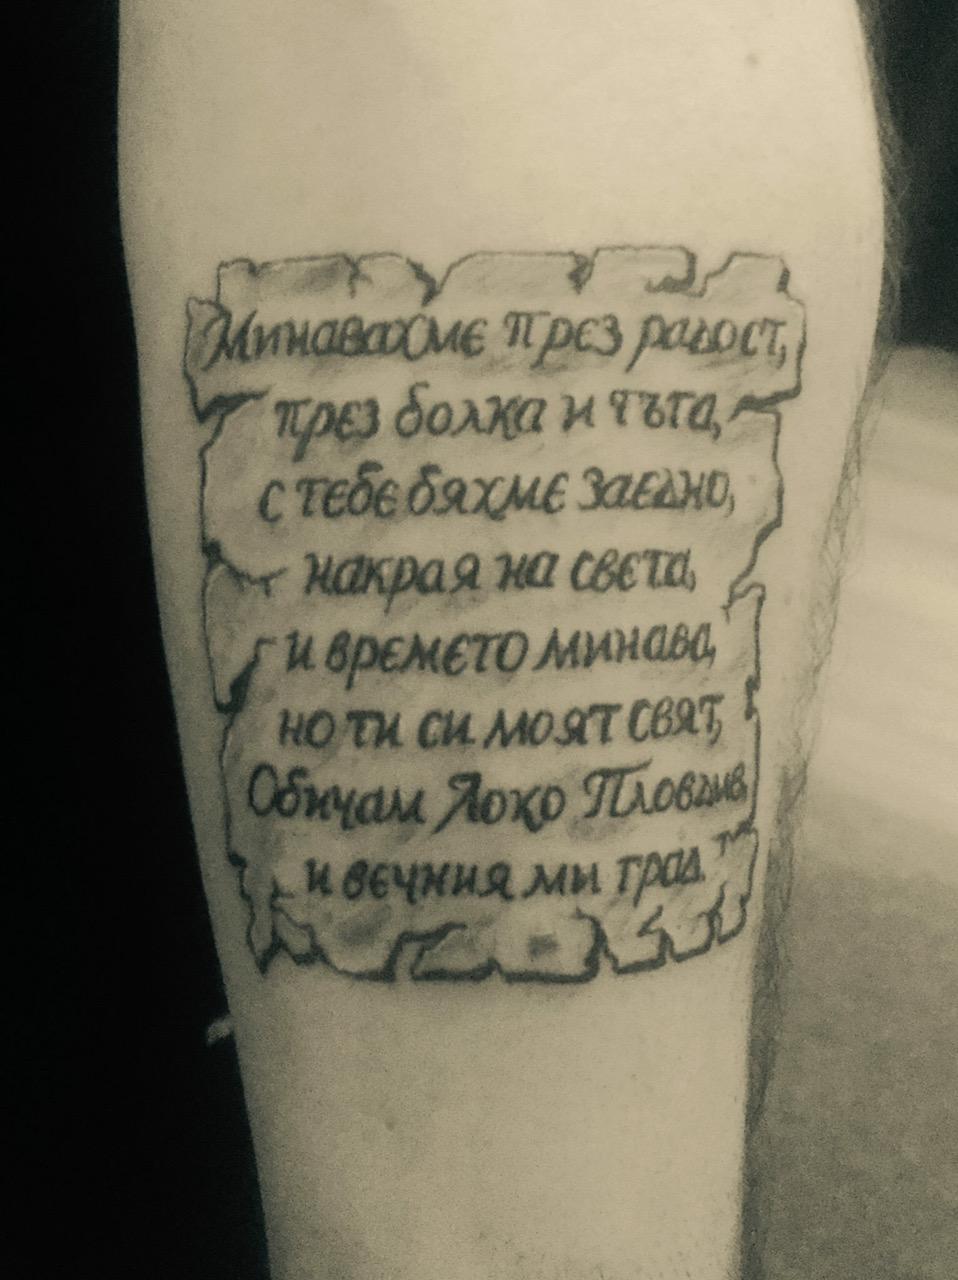 Минавахме през радост,
през болка и тъга,
с тебе бяхме заедно,
накрая на света,
и времето минава,
но ти си моят свят,
Обичам Локо Пловдив,
и вечния ми град.